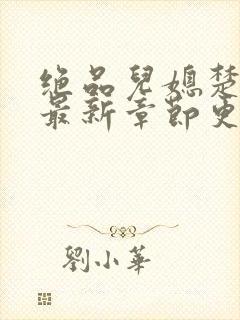 绝品兒媳楚
最新章節更
劉小華